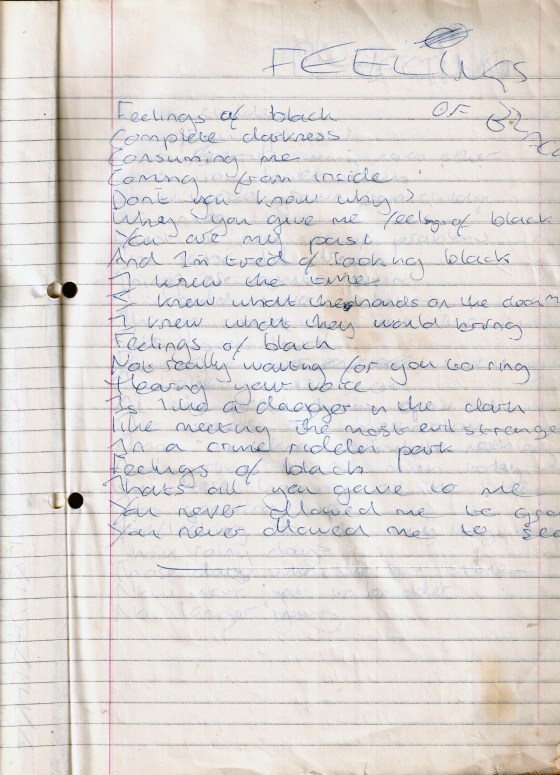 FEELiNgS
OF BLAC
Feelings of black
Complete darkness
Consuming me
Coming from inside
Don't you know why?
Why you give me feelings of black
You are my past
And I'm tred of looking black
I knew the time
I knew what the hands on the clock
I knew what they would bring
Feelings of black
Not really waiting for you to ring
Hearing your voice
Is like a dagger in the dark
like meeting the most evil strange
In a crime ridden park
Feelings of black
Thats all you gave to me
You never allowed me to gro
You never allowed me to see